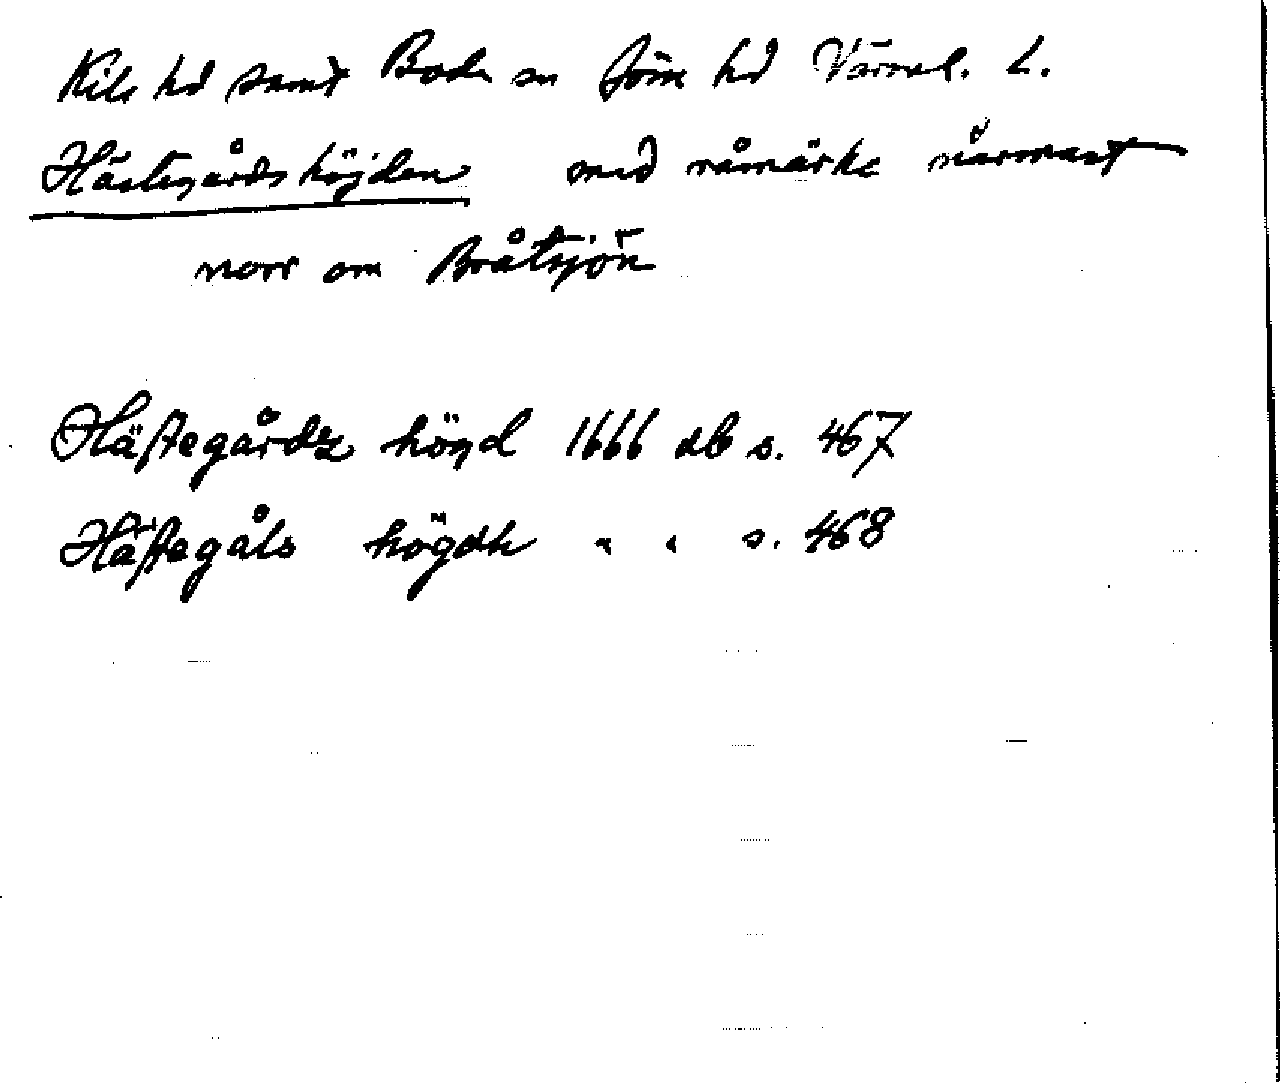 Kils hd samt Boda sn Jöss hd Värml. L.
Hästegårdshöjden med råmärke närmast
norr om Bråtsjön
Hästegårdz höijd 1666 db s. 467
Hästegåls högdh " " s. 468